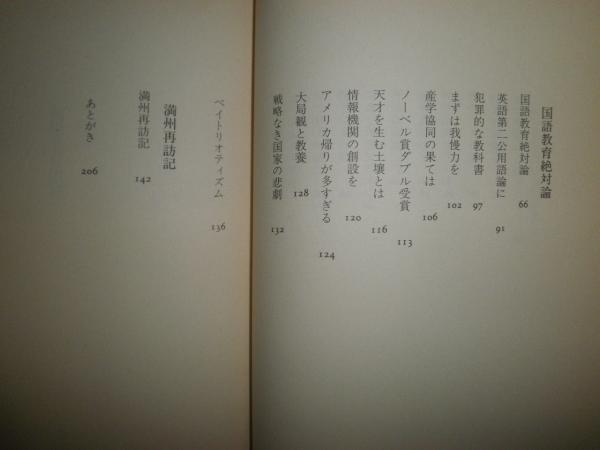 国語教育絶対論
国語教育絶対論 66
英語第二公用語論に 91
犯罪的な教科書 97
まずは我慢力を 102
産学協同の果ては 106
ノーベル賞ダブル受賞 113
天才を生む土壌とは 116
情報機関の創設を 120
アメリカ帰りが多すぎる 124
大局観と教養 128
戦略なき国家の悲劇 132
ペイトリオティズム 136
満州再訪記
満州再訪記 142
あとがき 206